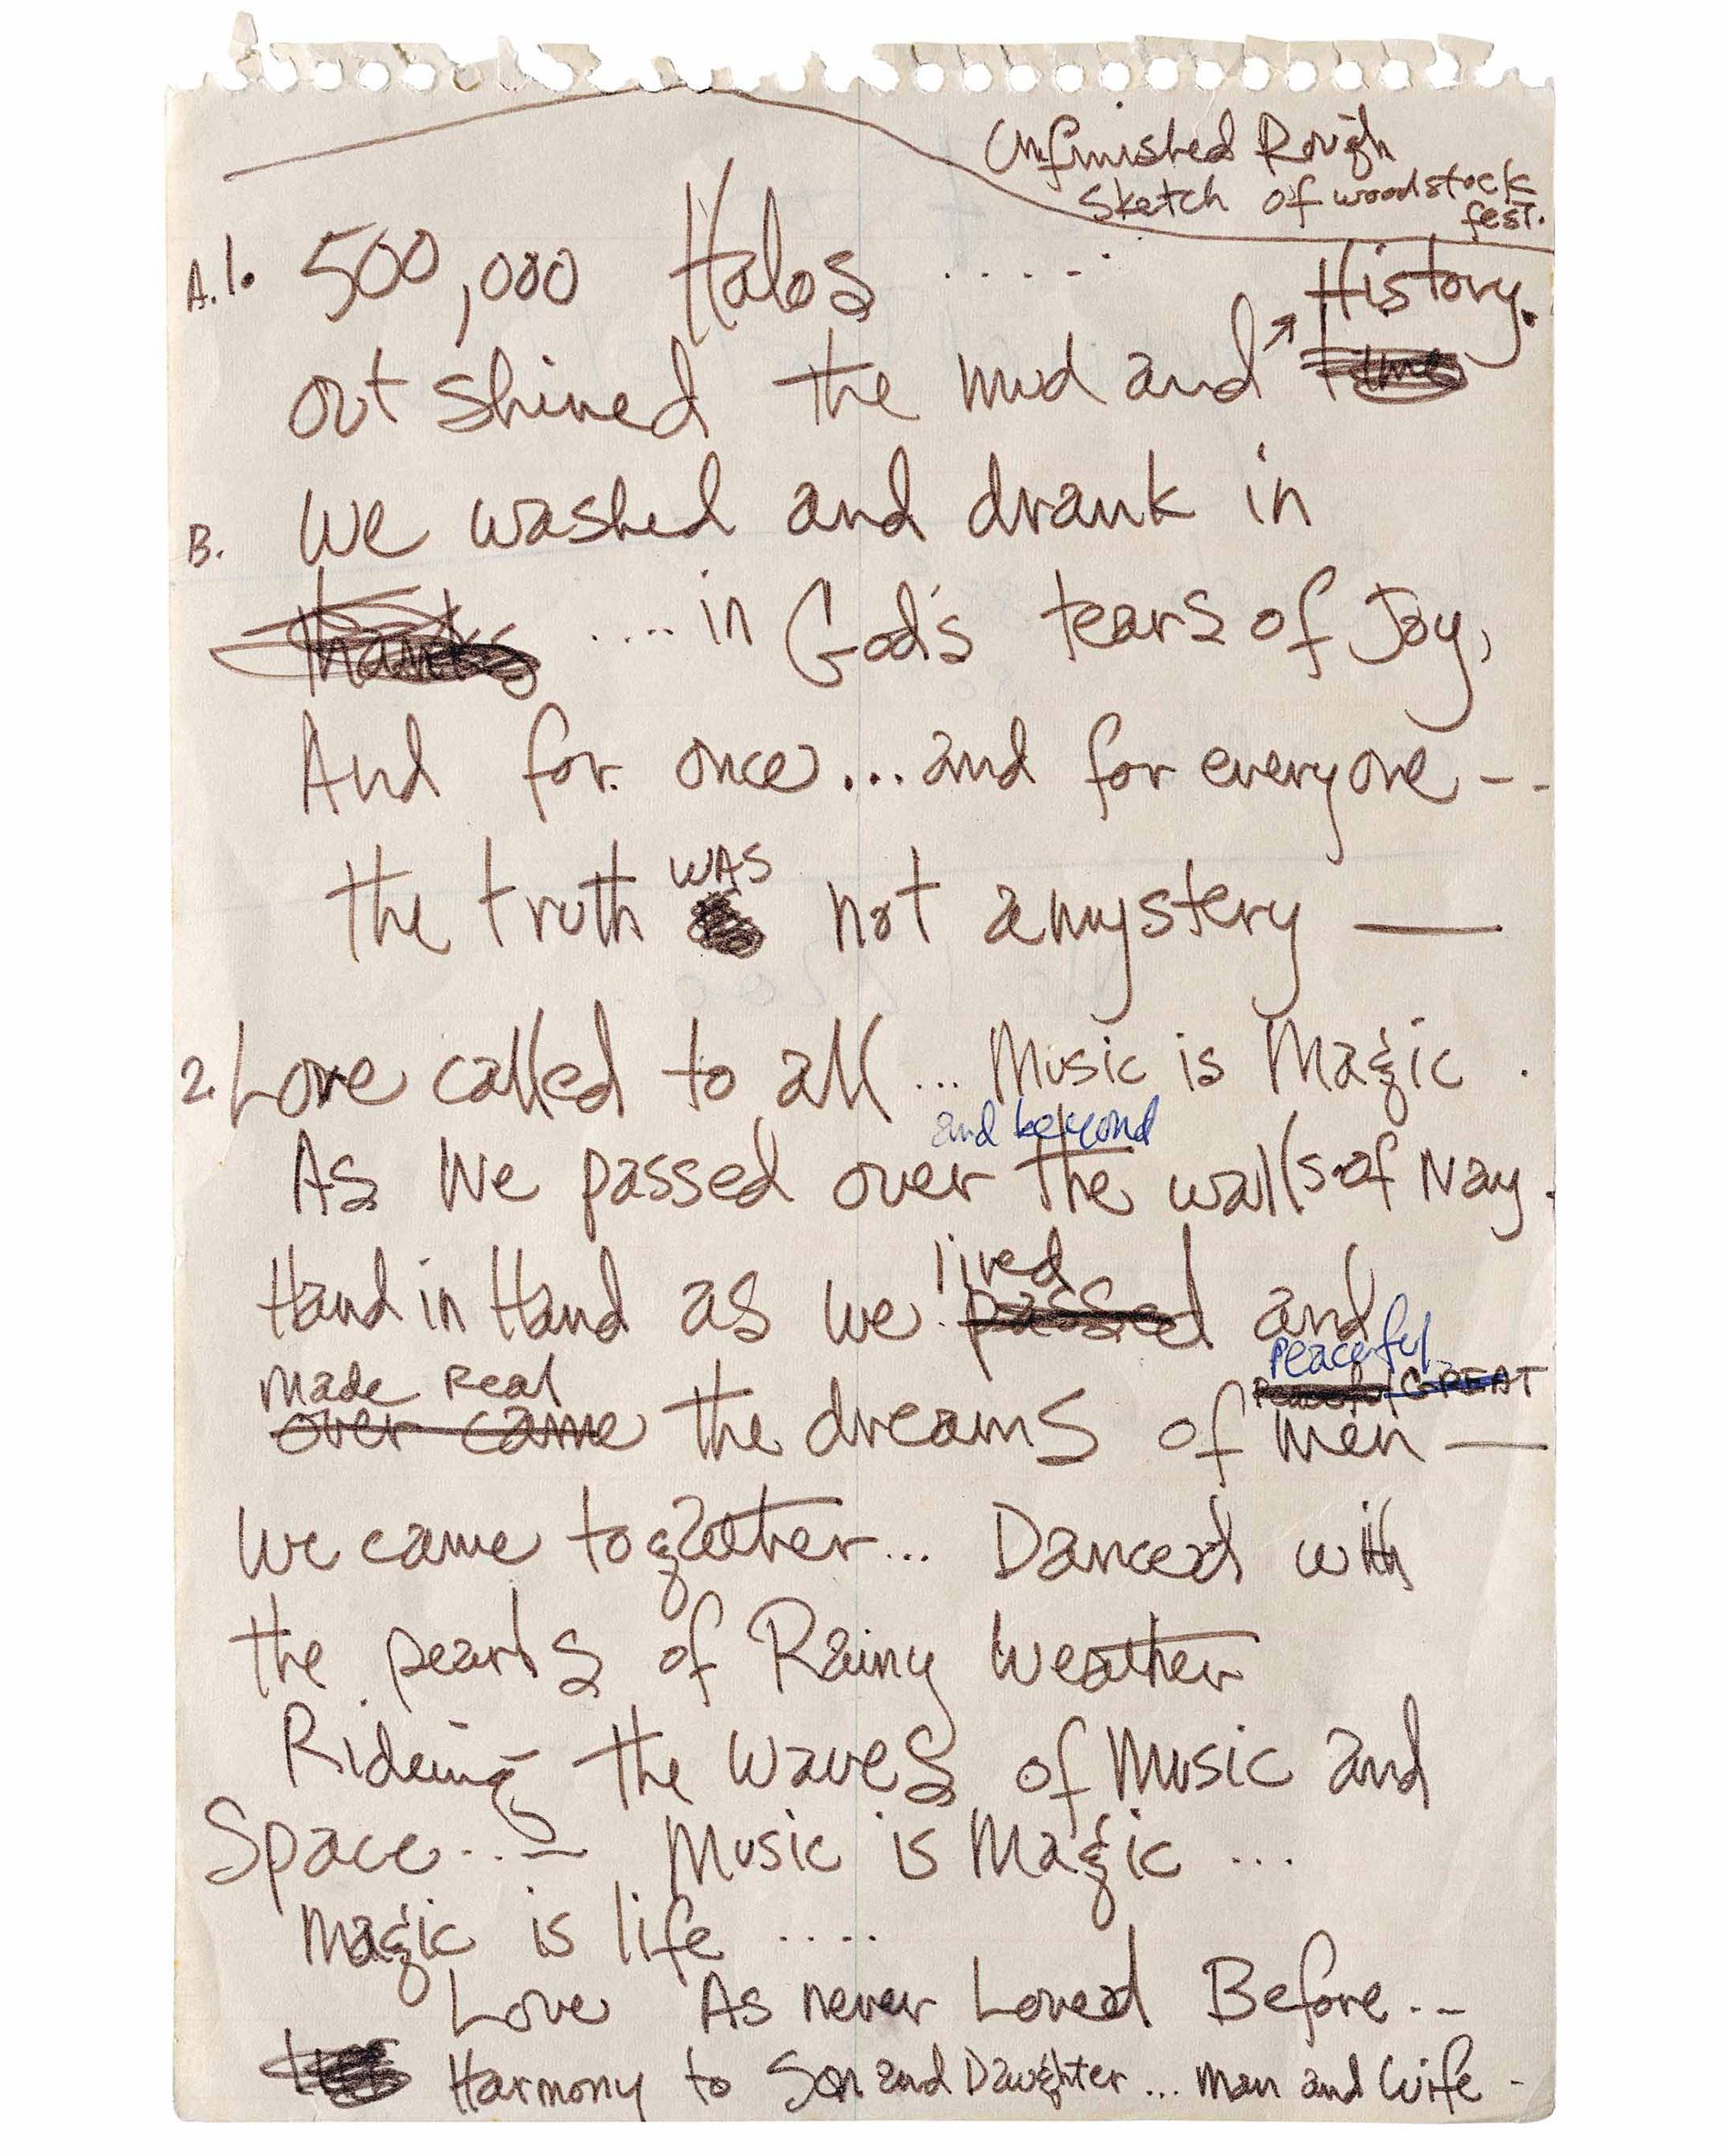 Unfinished Rough
Sketch of woodstock
fest.
A.1. 500,000 Halos .....
History.
out shined the mud and
B. We washed and drank in
thanks .... in God's tears of Joy,
And for once... and for everyone --
WAS
the truth not a mystery —
2. Love called to all ... Music is Magic .
and beyond
As we passed over the walls of Nay.
lived
Hand in Hand as we passed and
peaceful
made real GREAT
over came the dreams of men —
We came together... Danced with
the pearls of Rainy Weather
Rideing the waves of Music and
Space... — Music is Magic ...
magic is life ....
Love As never Loved Before...
Harmony to Son and Daughter ... man and wife -